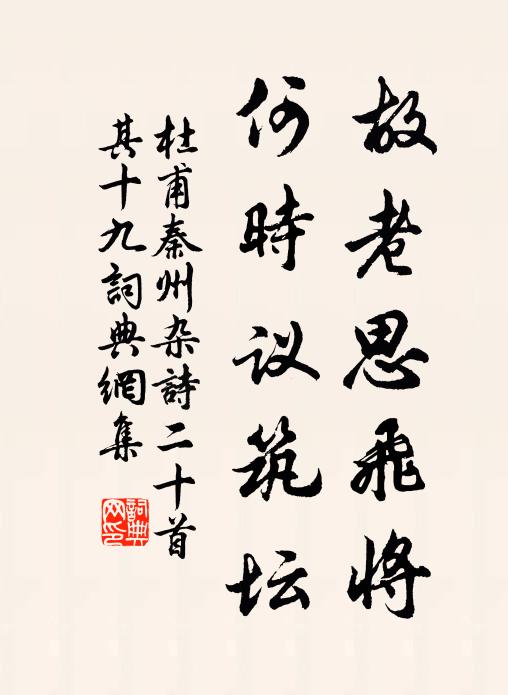 故老思飛將
何時议筑坛
杜甫秦州杂詩二十首
其十九詞典網集
詞典
网印